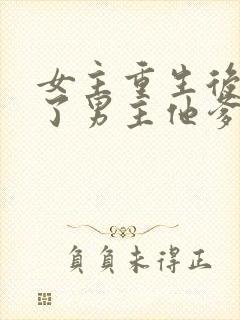 女主重生後
了男主他爹
負負未得正